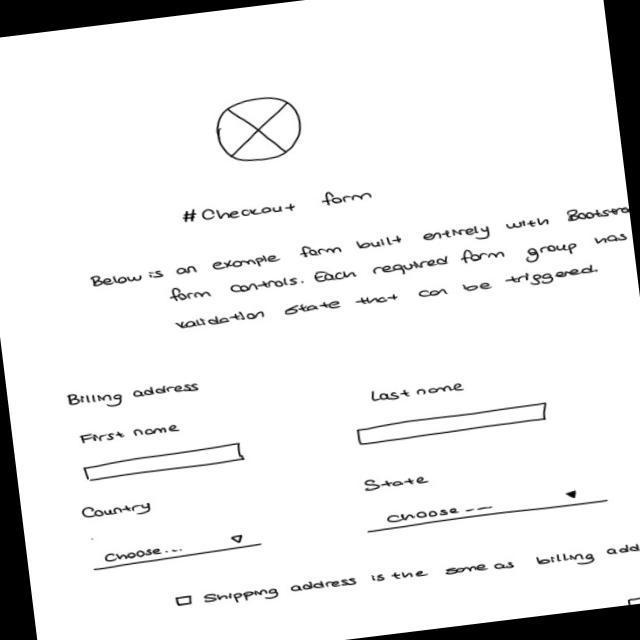 # Checkout form
Below is an example form built entirely with Bootstra
form controls. Each required form group has
validation state that can be triggered.
Billing address
First name
Last name
Country
State
Choose...
Choose ---
Shipping address is the same as billing add